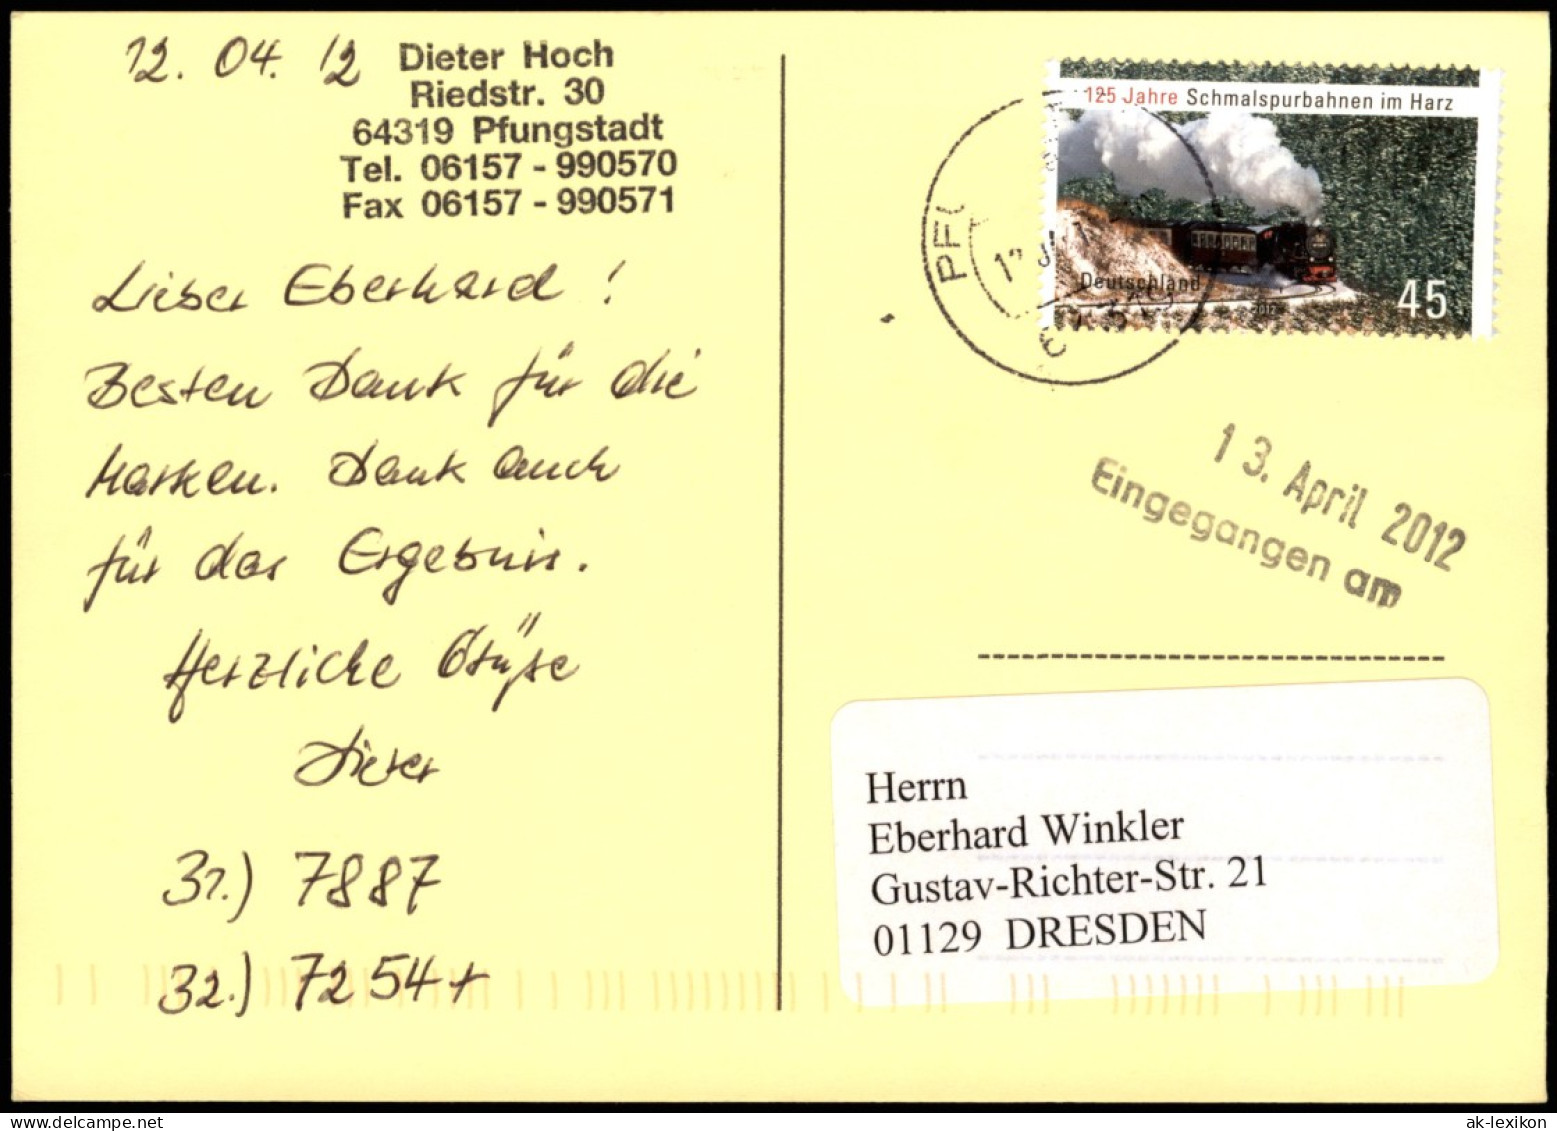 12. 04. 12
Dieter Hoch
Riedstr. 30
64319 Pfungstadt
Tel. 06157 - 990570
Fax 06157 - 990571
Lieber Eberhard !
Besten Dank für die
Marken. Dank auch
für das Ergebnis.
Herzliche Grüße
Dieter
31.) 7887
32.) 7254+
125 Jahre Schmalspurbahnen im Harz
Deutschland
45
2012
PF
13. April 2012
Eingegangen am
Herrn
Eberhard Winkler
Gustav-Richter-Str. 21
01129 DRESDEN
ak-lexikon